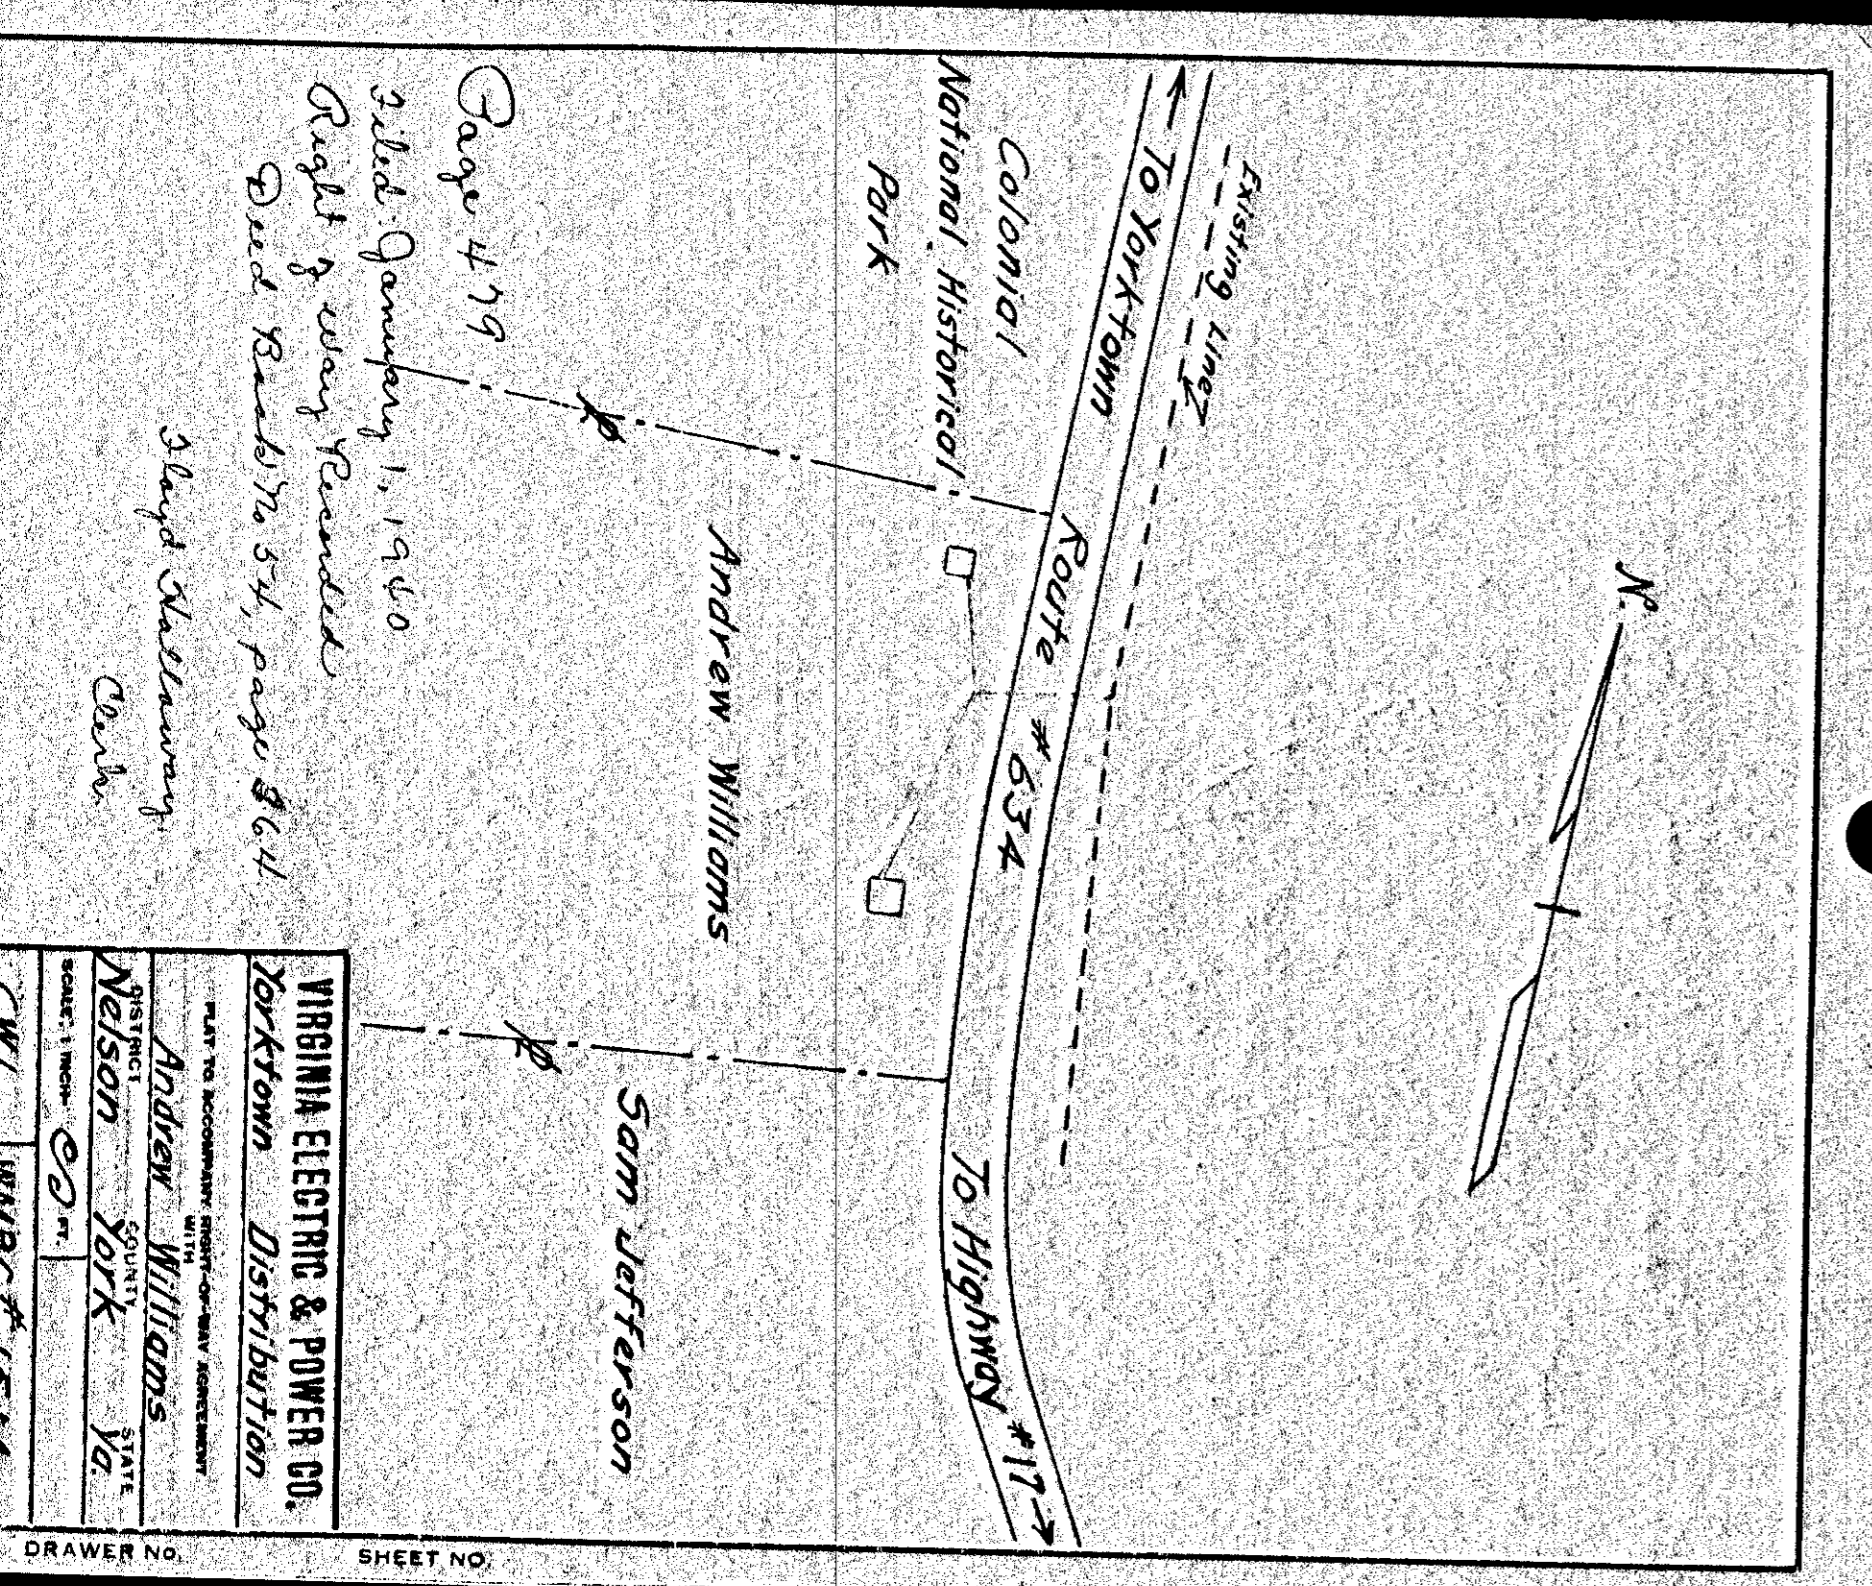 N.
Existing Line
To Yorktown
Route #634
To Highway #17
Colonial
National Historical
Park
Andrew Williams
Sam Jefferson
Page 479
Filed January 1, 1960
Right of way Recorded
Deed Book No 54, page 364
Floyd Hallowway
Clerk
VIRGINIA ELECTRIC & POWER CO.
Yorktown Distribution
PLAT TO ACCOMPANY RIGHT-OF-WAY AGREEMENT
WITH
Andrew Williams
DISTRICT COUNTY STATE
Nelson York Va.
SCALE: 1 INCH FT.
SHEET NO.
DRAWER NO.